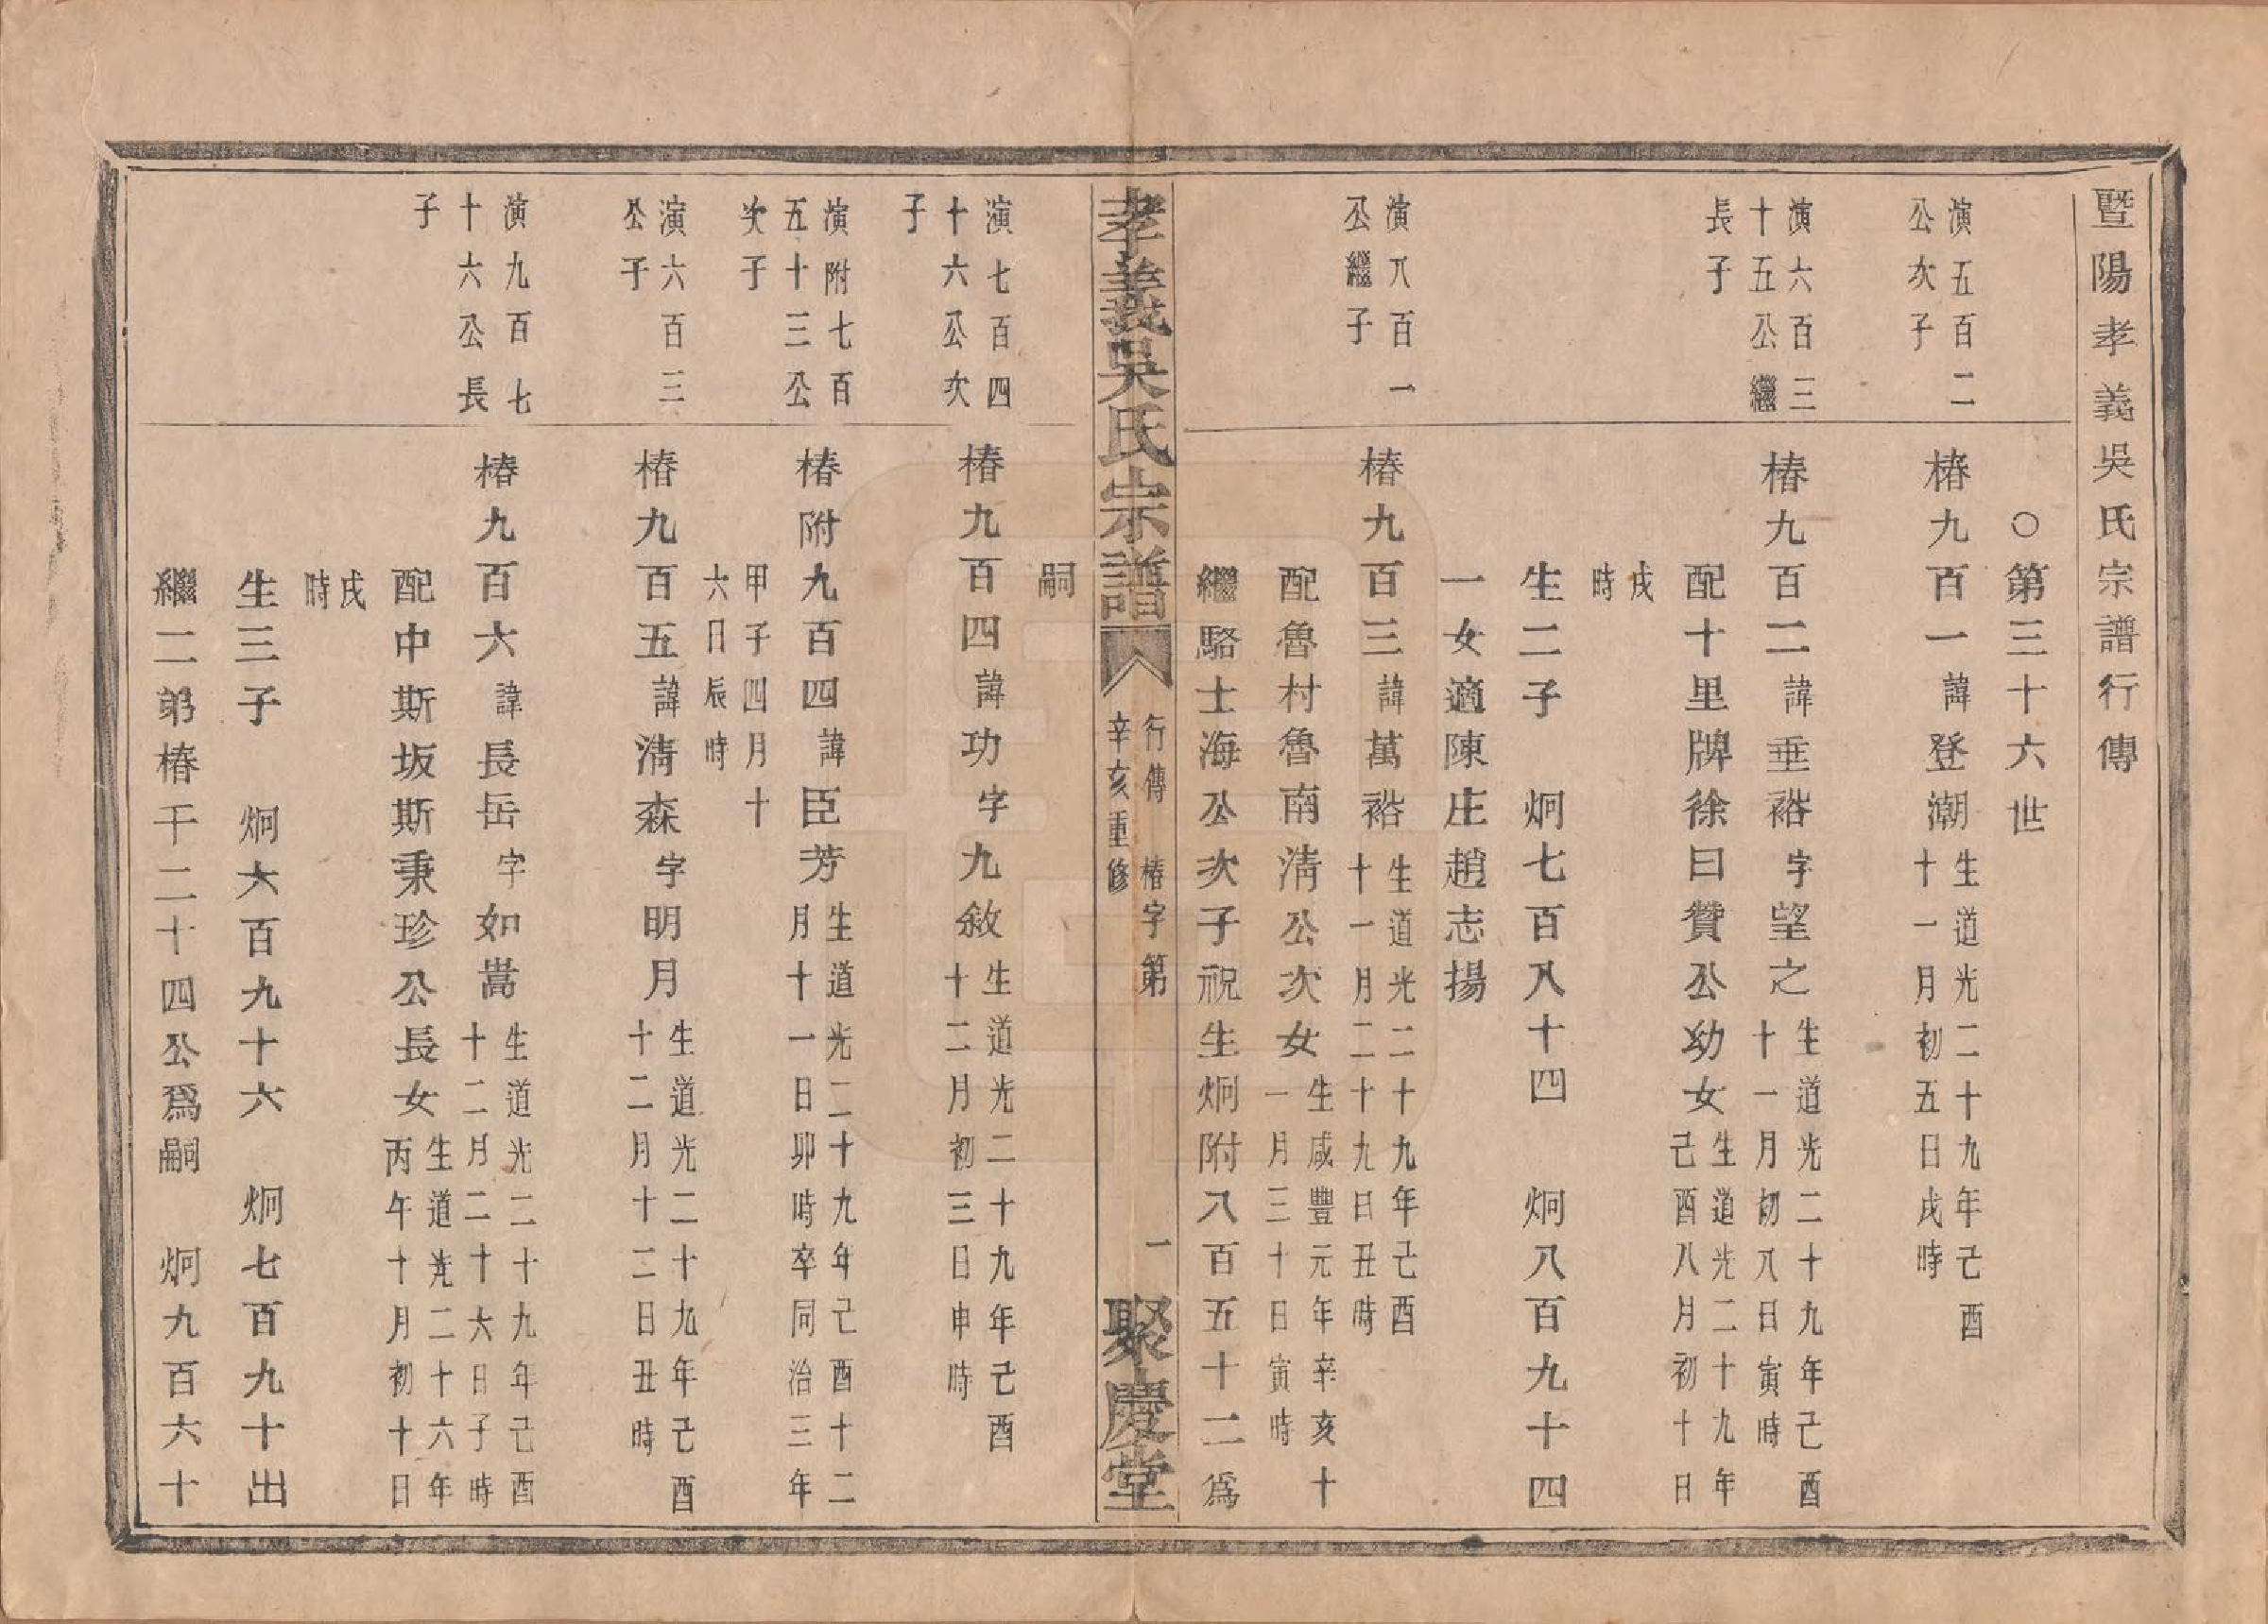 暨陽孝義吳氏宗譜行傳
○第三十六世
演五百二
公次子
椿九百一諱登潮
生道光二十九年己酉
十一月初五日戌時
演六百三
十五公繼
長子
椿九百二諱垂裕字望之
生道光二十九年己酉
十一月初八日寅時
配十里牌徐曰贊公幼女
生道光二十九年
己酉八月初十日
戌
時
生二子 炯七百八十四 炯八百九十四
一女適陳庄趙志揚
演八百一
公繼子
椿九百三諱萬裕
生道光二十九年己酉
十一月二十九日丑時
配魯村魯南淸公次女
生咸豐元年辛亥十
一月三十日寅時
繼駱士海公次子祝生炯附八百五十二爲
孝義吳氏宗譜
行傳 椿字第 一
辛亥重修
聚慶堂
嗣
演七百四
十六公次
子
椿九百四諱功字九敘
生道光二十九年己酉
十二月初三日申時
演附七百
五十三公
次子
椿附九百四諱臣芳
生道光二十九年己酉十二
月十一日卯時卒同治三年
甲子四月十
六日辰時
演六百三
公子
椿九百五諱淸森字明月
生道光二十九年己酉
十二月十二日丑時
演九百七
十六公長
子
椿九百六諱長岳字如嵩
生道光二十九年己酉
十二月二十六日子時
配中斯坂斯秉珍公長女
生道光二十六年
丙午十月初十日
戌
時
生三子 炯六百九十六 炯七百九十出
繼二弟椿干二十四公爲嗣 炯九百六十